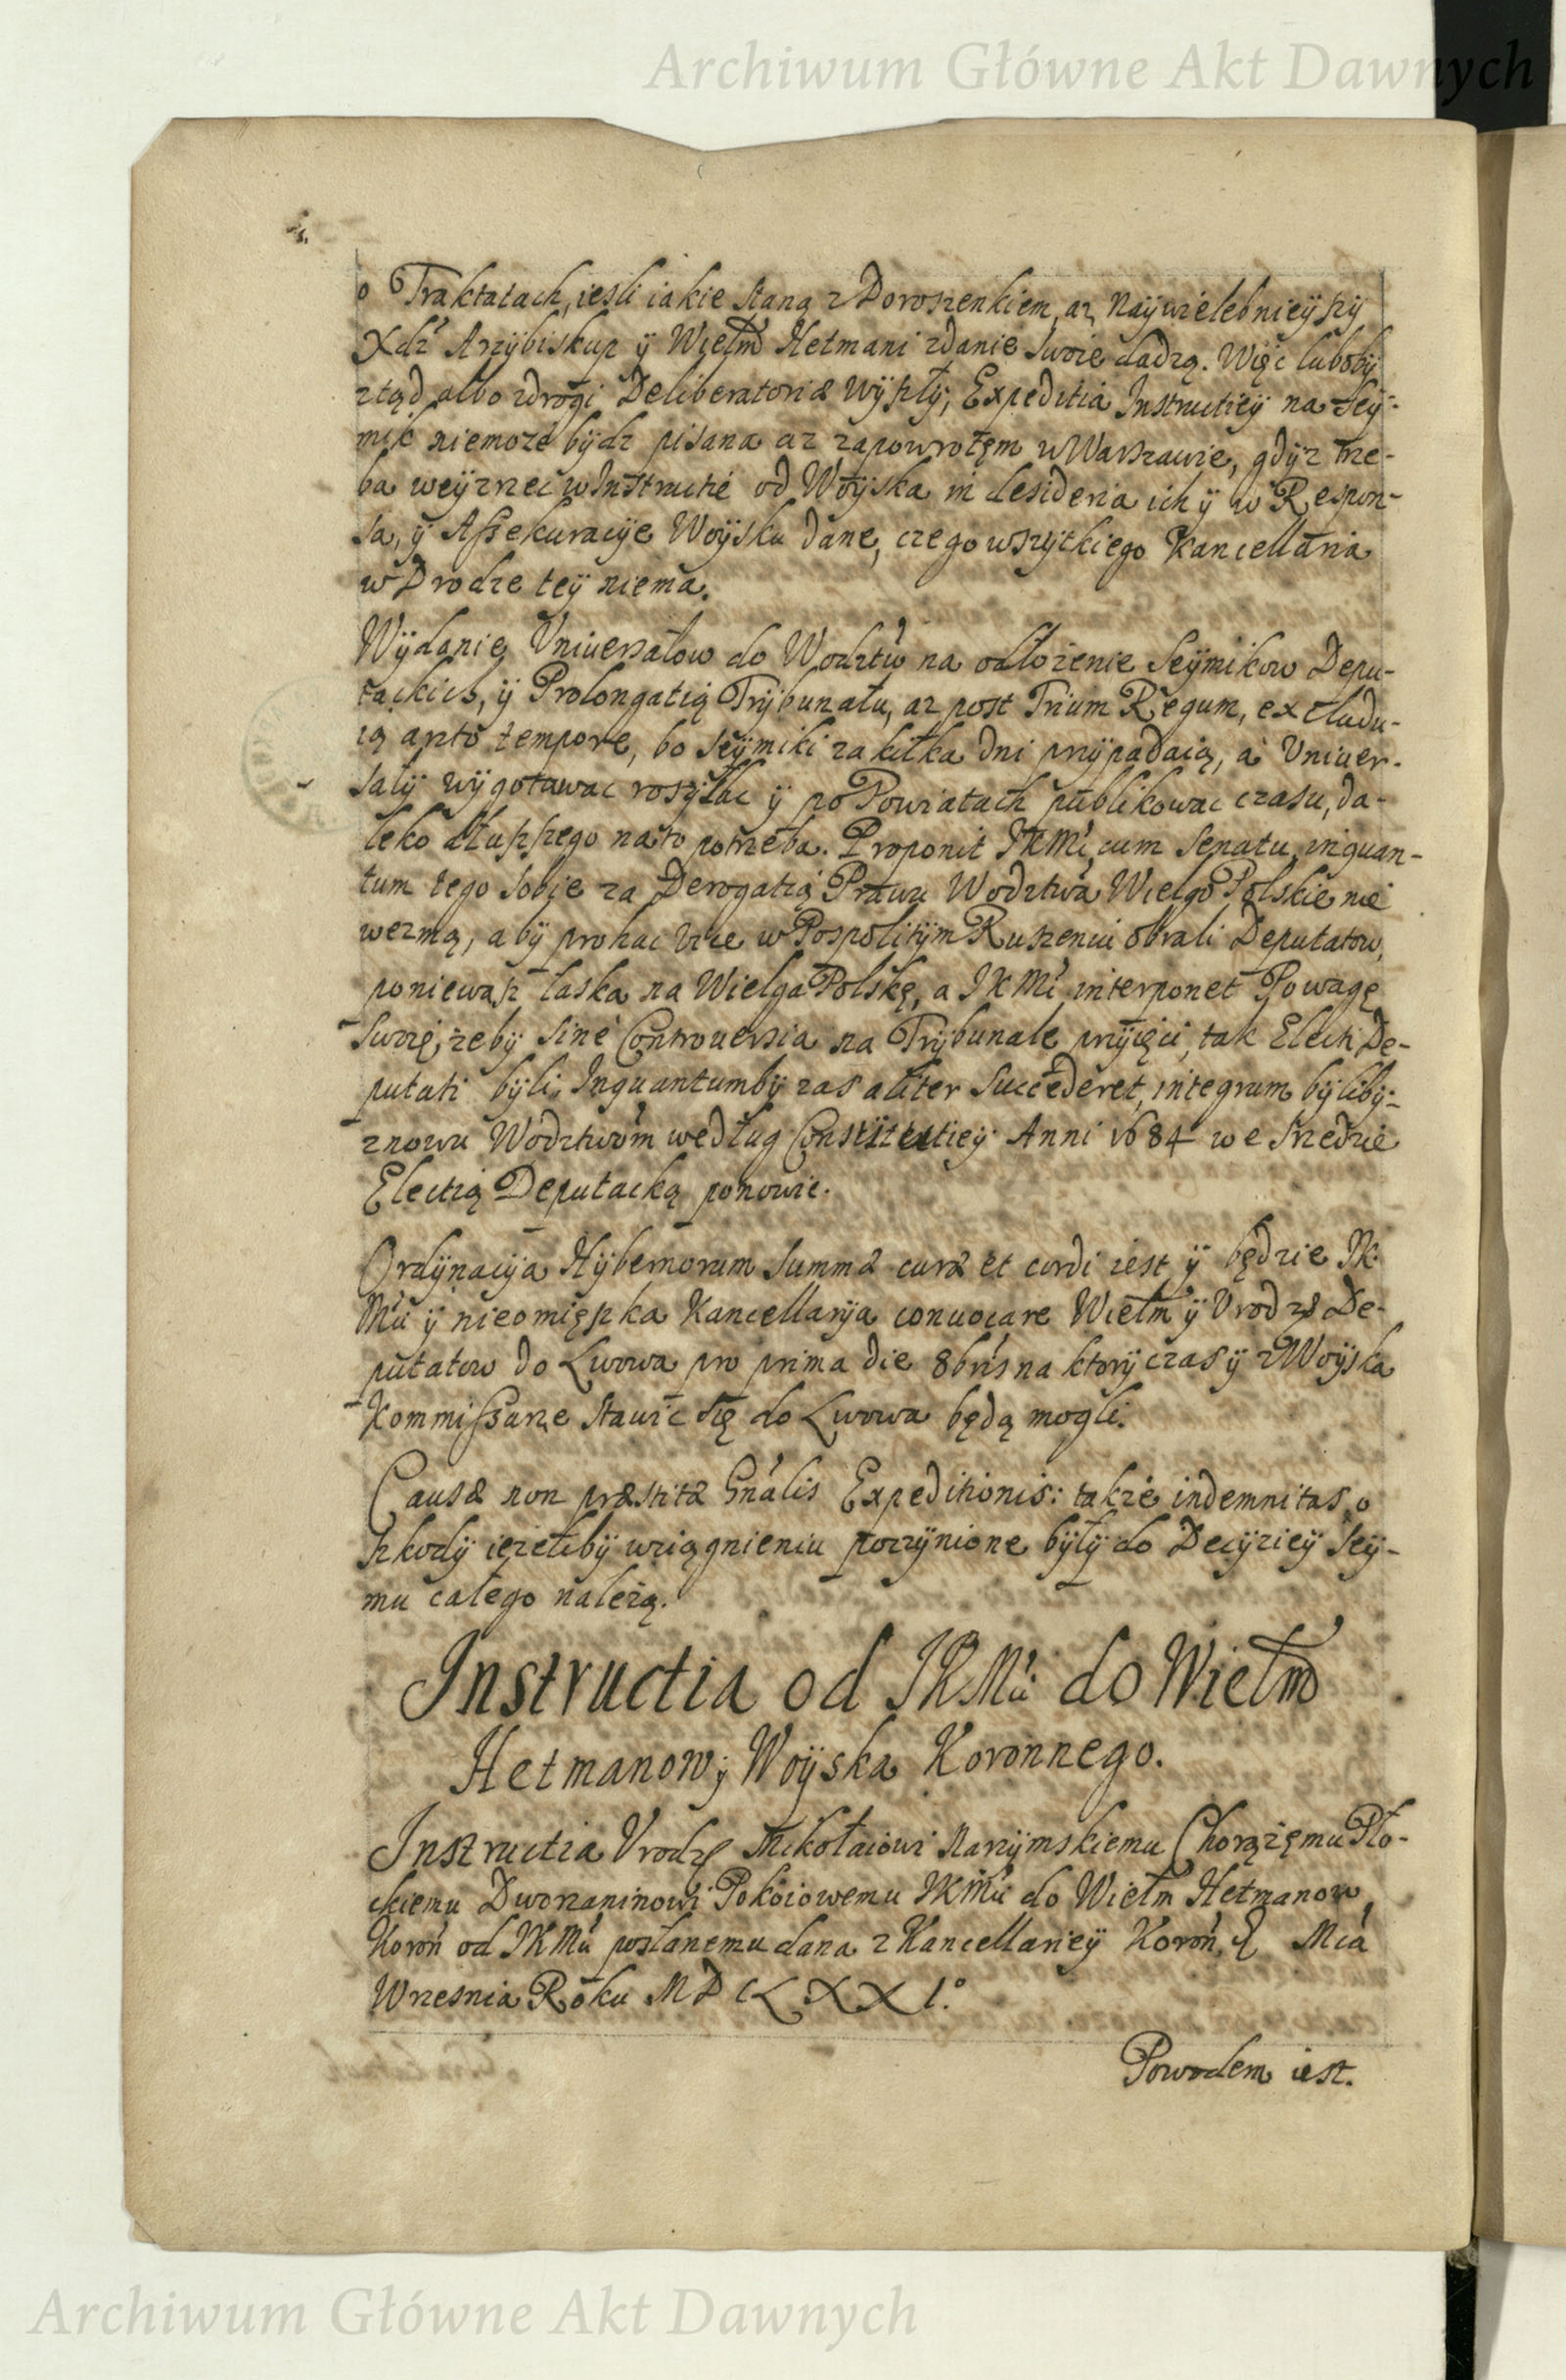 Archiwum Główne Akt Dawnych
o Traktatach, iesli iakie staną z Doroszenkiem, az Naÿwielebnieÿszÿ
Xdź Arzÿbiskup ÿ Wielm Hetmani zdanie swoie dadzą. Więc lubobÿ
ztąd albo zdrogi Deliberatoriæ wÿszłÿ, Expeditia Instructieÿ na Seÿ-
mik niemoże bÿdz pisana az zapowrotęm w Warszawie, gdÿz trze-
ba weÿzrzec w Instructié od Woÿska in desideria ich ÿ w Respon-
sa, ÿ Assekuracÿe Woÿsku dane, czego wszÿtkiego Kancellaria
w Drodze teÿ niema.
Wÿdanie Vniwersałow do Wodztw na odłożenie Seÿmikow Depu-
tackich, ÿ Prolongatią Trÿbunału, az post Trium Regum, excludu-
ią apto tempore, bo Seÿmiki za kilka dni przÿpadaią, a Vniwer-
sałÿ wÿgotawac roszÿłac ÿ po Powiatach publikowac czasu, da-
leko dłuszszego nato potrzeba. Proponit JKMć cum Senatu, inquan-
tum tego sobie za Derogatią Prawu Wodztwa Wielgo Polskie nie
wezmą, abÿ pro hac vice w Pospolitÿm Ruszeniu obrali Deputatow,
poniewasz laska na Wielga Polskę, a JKMć interponet Powagę
swoię, żebÿ sine Controuersia na Trÿbunale przÿięci, tak Electi De-
putati bÿli, Inquantumbÿ zas aliter succederet, integrum bÿłobÿ-
znowu Wodztwom według Constitutieÿ Anni 1684 w e Srzedzie
Electią Deputacką ponowic.
Ordÿnacÿa Hÿbernorum summæ curæ et cordi iest ÿ będzie JK
Mći ÿ nieomięszka Kancellarÿa conuocare Wielm ÿ Vrodz De-
putatow do Lwowa pro prima die 8bris na ktorÿ czas ÿ z Woÿska
Kommissarze stawic się do Lwowa będą mogli.
Causæ non præstitæ Gnális Expeditionis: także indemnitas o
szkodÿ ieżelibÿ w ciągnieniu poczÿnione bÿłÿ do Decÿzieÿ Seÿ-
mu całego należą.
Instructia od JKMći do Wielm
Hetmanow ÿ Woÿska Koronnego.
Instructia Vrodz Mikołaiowi Narzÿmskiemu Chorążęmu Pło-
ckiemu Dworzaninowi Pokoiowemu JKMći do Wielm Hetmanow
Koron od JKMći posłanemu dana z Kancellarieÿ Koron Mca
Wrzesnia Roku MDCLXXI.°
Powodem iest.
Archiwum Główne Akt Dawnych